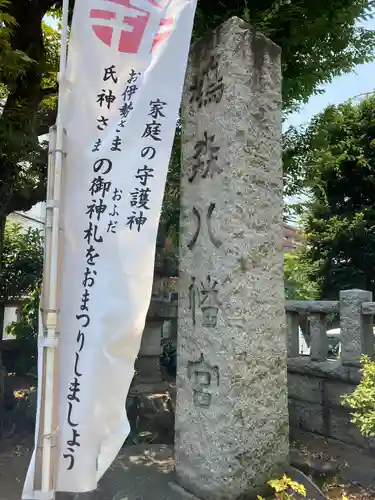 鳩森八幡宮
家庭の守護神
お伊勢さま
氏神さまの御神札をおまつりしましょう
おふだ